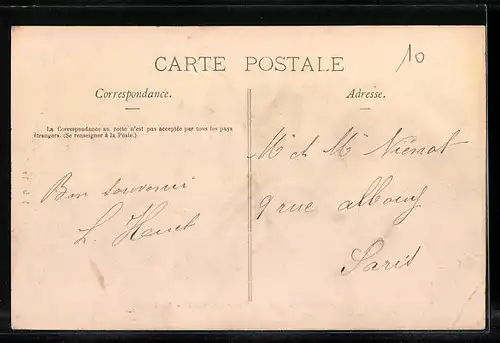 10
CARTE POSTALE
Correspondance.
La Correspondance au recto n'est pas acceptée par tous les pays
étrangers. (Se renseigner à la Poste.)
Bon souvenir
L. Huet
Adresse.
Mr et Me Viénot
9 rue albouy
Paris